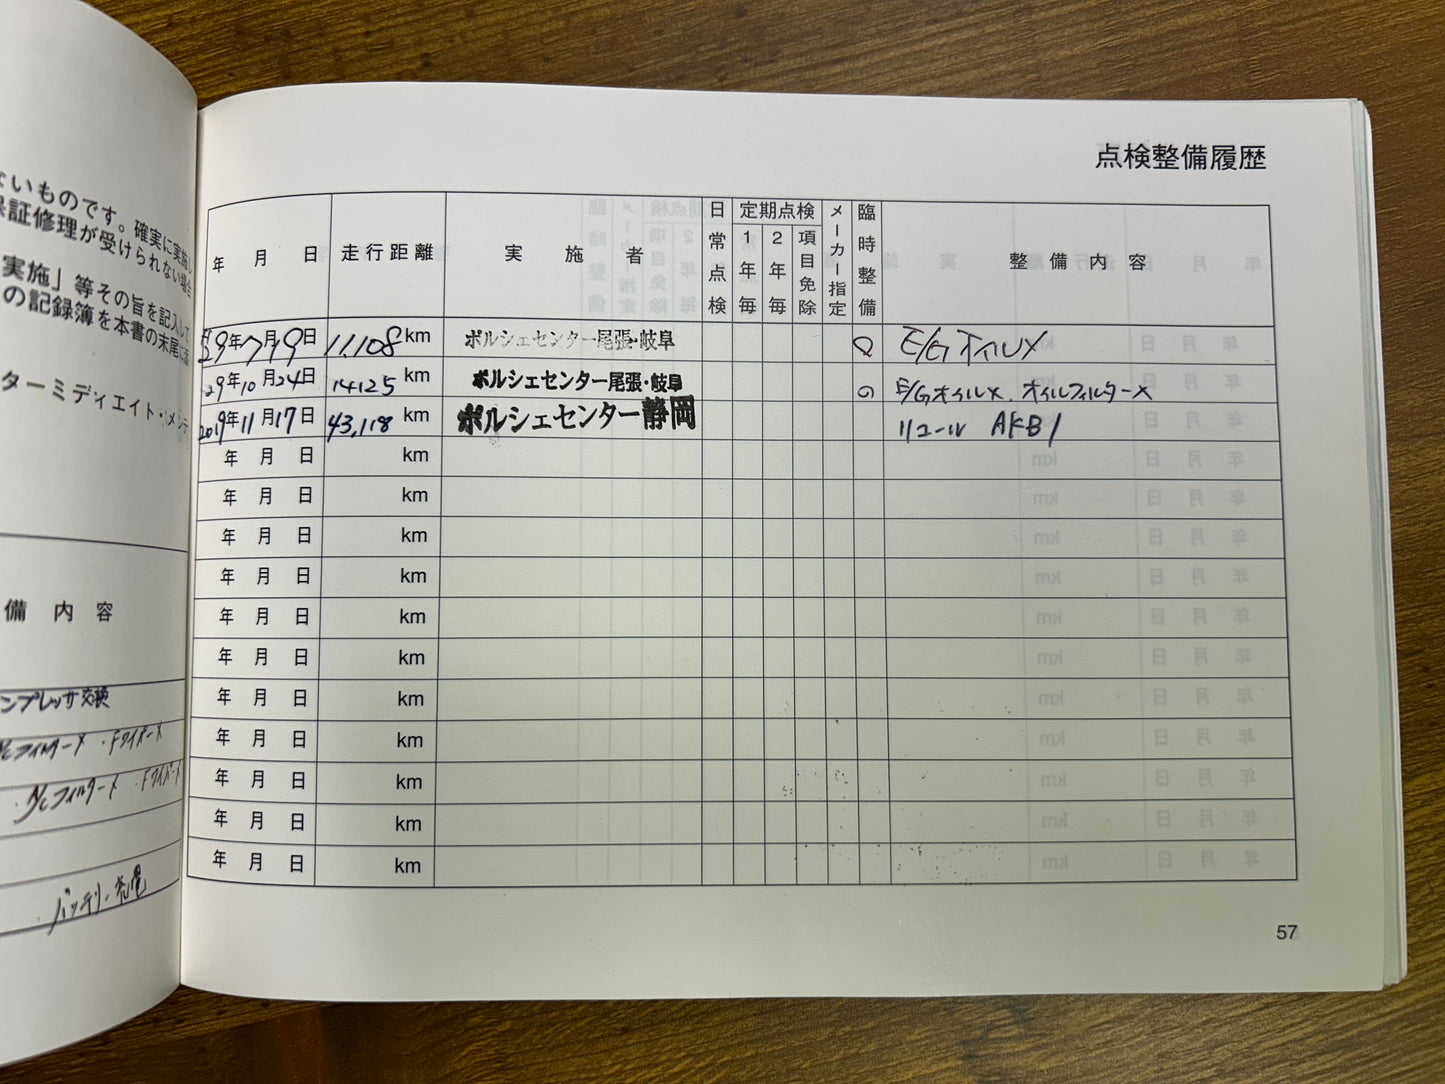 ないものです。確実に実施し
保証修理が受けられない場合
実施」等その旨を記入して
の記録簿を本書の末尾に
ターミディエイト・メンテ
備 内 容
ンプレッサ交換
A/Cフィルター〆 ・Fワイパー〆
・A/Cフィルター〆 ・Fワイパー〆
バッテリー充電
点検整備履歴
年 月 日 走行距離 実施者 日常点検 定期点検 1年毎 2年毎 項目免除 メーカー指定 臨時整備 整備内容
29年7月19日 11,108 km ポルシェセンター尾張・岐阜 ○ E/Gオイル〆
29年10月24日 14125 km ポルシェセンター尾張・岐阜 ○ E/Gオイル〆、オイルフィルター〆
2019年11月17日 43,118 km ポルシェセンター静岡 リコール AKB1
年 月 日 km
年 月 日 km
年 月 日 km
年 月 日 km
年 月 日 km
年 月 日 km
年 月 日 km
年 月 日 km
年 月 日 km
年 月 日 km
年 月 日 km
57